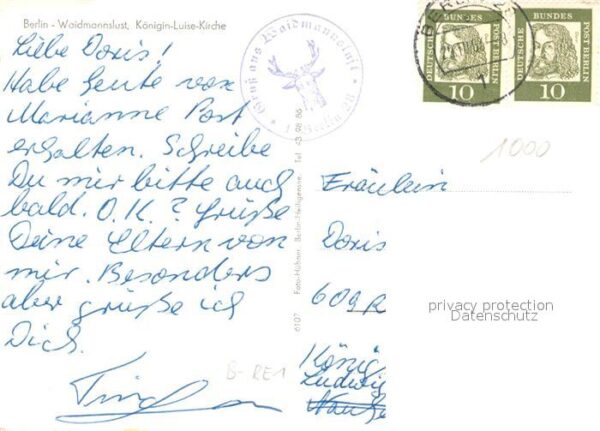 Berlin - Waidmannslust, Königin-Luise-Kirche
Liebe Doris!
Habe heute von
Marianne Post
erhalten. Schreibe
Du mir bitte auch
bald. O.K.? Grüße
Deine Eltern von
mir. Besonders
aber grüße ich
Dich.
Gruß aus Waidmannslust
1 Berlin 28
6107 Foto-Hübner, Berlin-Heiligensee, Tel 43 98 86
DEUTSCHE BUNDES POST BERLIN
10
DEUTSCHE BUNDES POST BERLIN
10
BERLIN
1
1000
Fräulein
Doris
609 R
König
Ludwig
B-RE1
privacy protection
Datenschutz